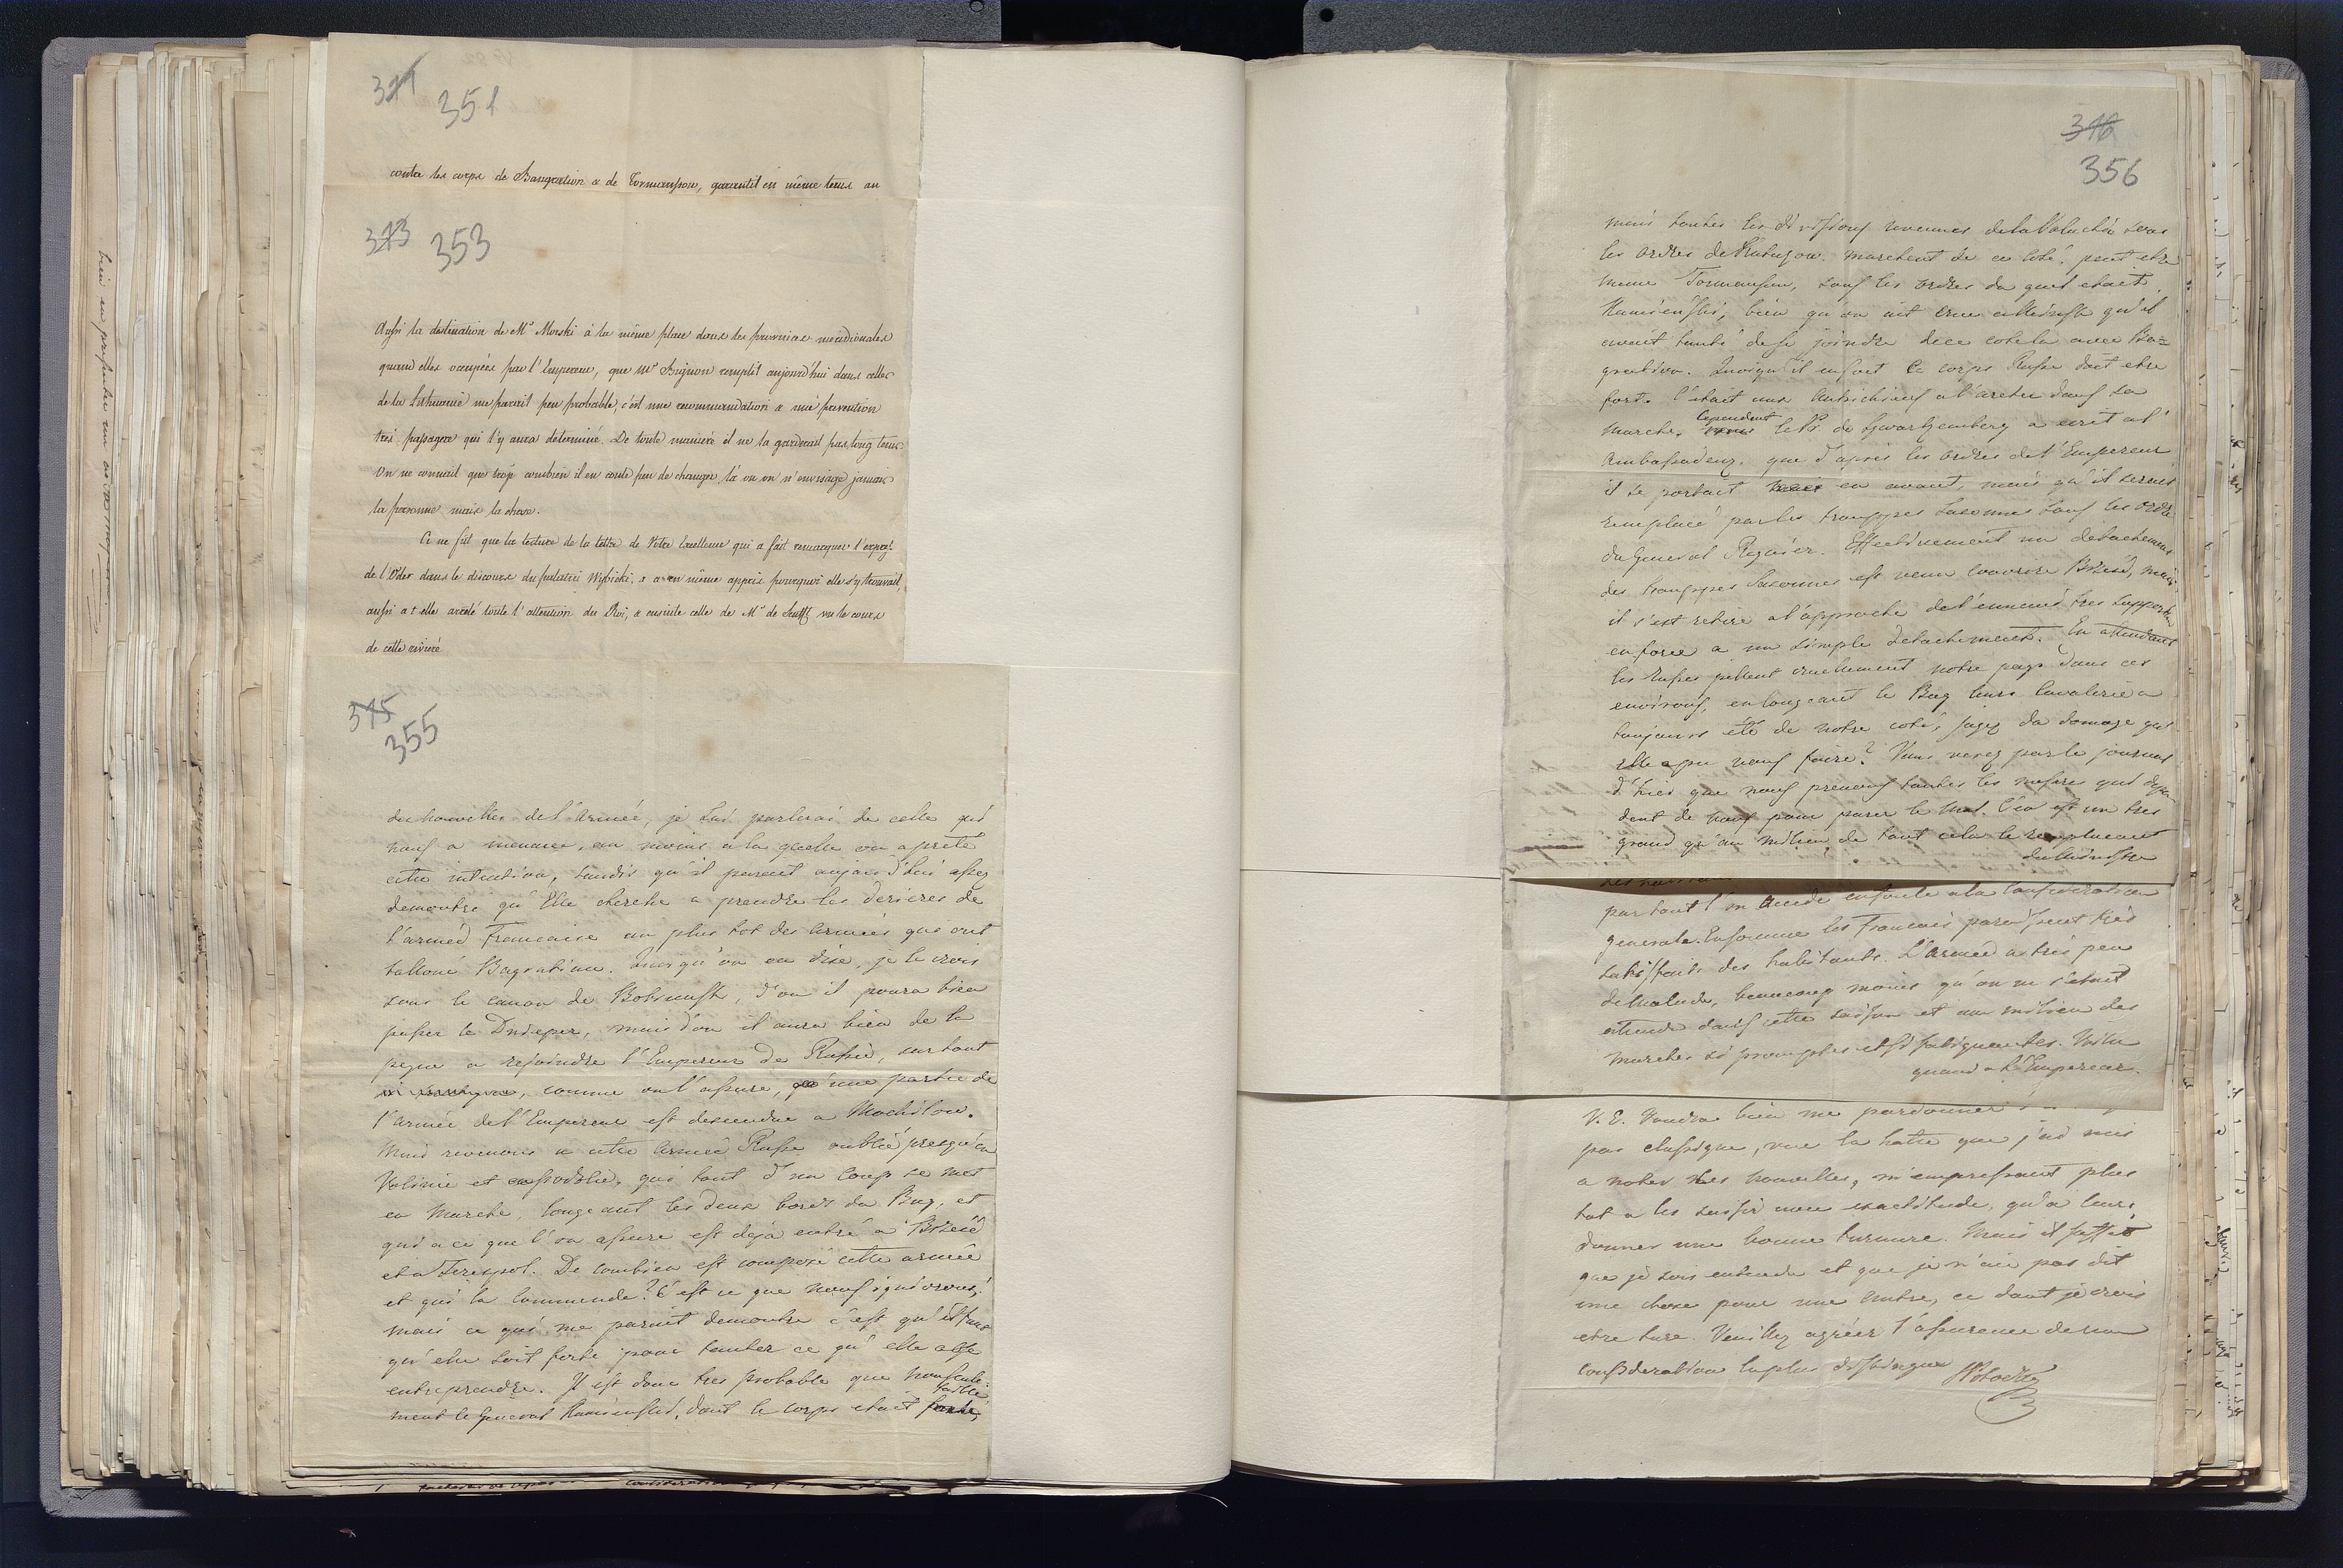 351
contre les corps de Bangration & de Tormansow, garantit en même tems au
373 353
Aussi la destination de Mr Morski à la même place dans les provinces meridionales
quand elles occupées par l'Empereur, que Mr Bignon remplit aujourd'hui dans celles
de la Lithuanie me parait peu probable, c'est une recommandation & une prevention
très passagere qui l'y aura determiné. De toute maniere il ne la garderait pas long tems
On ne connait que trop combien il en coute peu de changer là où on n'envisage jamais
la personne mais la chose.
Ce ne fut que la lecture de la lettre de Votre Excellence qui a fait remarquer l'expres.
de l'Oder dans le discours du palatin Wybicki, & a en même appris pourquoi elle s'y trouvait,
aussi a t elle arreté toute l'attention du Roi, & ensuite celle de Mr de Senfft vu le cours
de cette riviere
375
355
des nouvelles de l'Armée, je lui parlerai de celle qui
nous a menacé, au moins a la quelle on a preté
cette intention, tandis qu'il parait aujourd'hui assez
demontré qu'Elle cherche a prendre les derieres de
l'armée Francaise ou plus tot des armées qui ont
talloné Bagration. Quoiqu'on en dise, je le crois
sous le canon de Bobruysk, d'ou il poura bien
passer le Dnieper, mais d'ou il aura bien de la
peine a rejoindre l'Empereur de Russie, surtout
comme on l'assure, qu'une partie de
l'armée de l'Empereur est descendue a Mochilow.
Mais revenons a cette armée Russe oublié presqu'en
Volinie et en Podolie, qui tout d'un coup se met
en Marche, longeant les deux bords du Bug, et
qui a ce que l'on assure est dejà entré a Brzesć
et a Terespol. De combien est composé cette armée
et qui la commende? C'est ce que nous ignorons,
mais ce qui me parait demontre c'est qu'il faut
qu'elle soit forte pour tenter ce qu'elle ose
entreprendre. Il est donc tres probable que nonseule-
ment le General Kamienski, dont le corps etait faible
356
mais toutes les divisions revenues de la Valachie sous
les ordres de Kutuzow marchent de ce coté, peut etre
meme Tormansow, sous les ordres du quel etait
Kamienski, bien qu'on ait crue a Minsk qu'il
avait tenté de se joindre de ce coté la avec Ba=
gration. Quoiqu'il en soit ce corps Russe doit etre
fort. C'etait aux Autrichiens a l'areter dans sa
Marche. Cependant le Pr. de Swartzemberg a ecrit a l'
Ambassadeur, que d'apres les ordres de l'Empereur
il se portait en avant, mais qu'il serait
remplacé par les trouppes Saxonnes sous les ordres
du General Regnier. Effectivement un detachement
des trouppes Saxonnes est venu couvrire Brzesć, mais
il s'est retiré a l'approche de l'ennemi tres
en force a un simple detachement. En attendant
les Russes pillent cruellement notre pays dans ces
environs, en longeant le Bug leurs cavalerie a
toujours été de notre coté, jugez du domage qu'
elle a pu nous faire? Vous verez par le journal
d'hier que nous prenons toutes les mesure qui depen-
dent de nous pour parer le mal. C'en est un tres
grand qu'au milieu de tout cela le remplacant
du Ministre
par tout l'on accede en foule a la Confederation
generale. En somme les Francais paraissent très
satisfaits des habitants. L'armée a très peu
de Malades, beaucoup moins qu'on ne s'etait
attendu dans cette saison et au milieu des
marches si promptes et si fatiguantes. Votre
quand a l'Empereur.
V. E. Voudra bien me pardonner
pas classique, vue la hatte que j'ai mis
a noter les nouvelles, m'empressant plus
tot a les saisir avec exactitude, qu'a leurs
donner une bonne turnure. Mais il suffit
que je sois entendu et que je n'aie pas dit
une chose pour une autre, ce dont je crois
etre sure. Veuillez agréer l'assurence de ma
consideration la plus distinguée Potocki